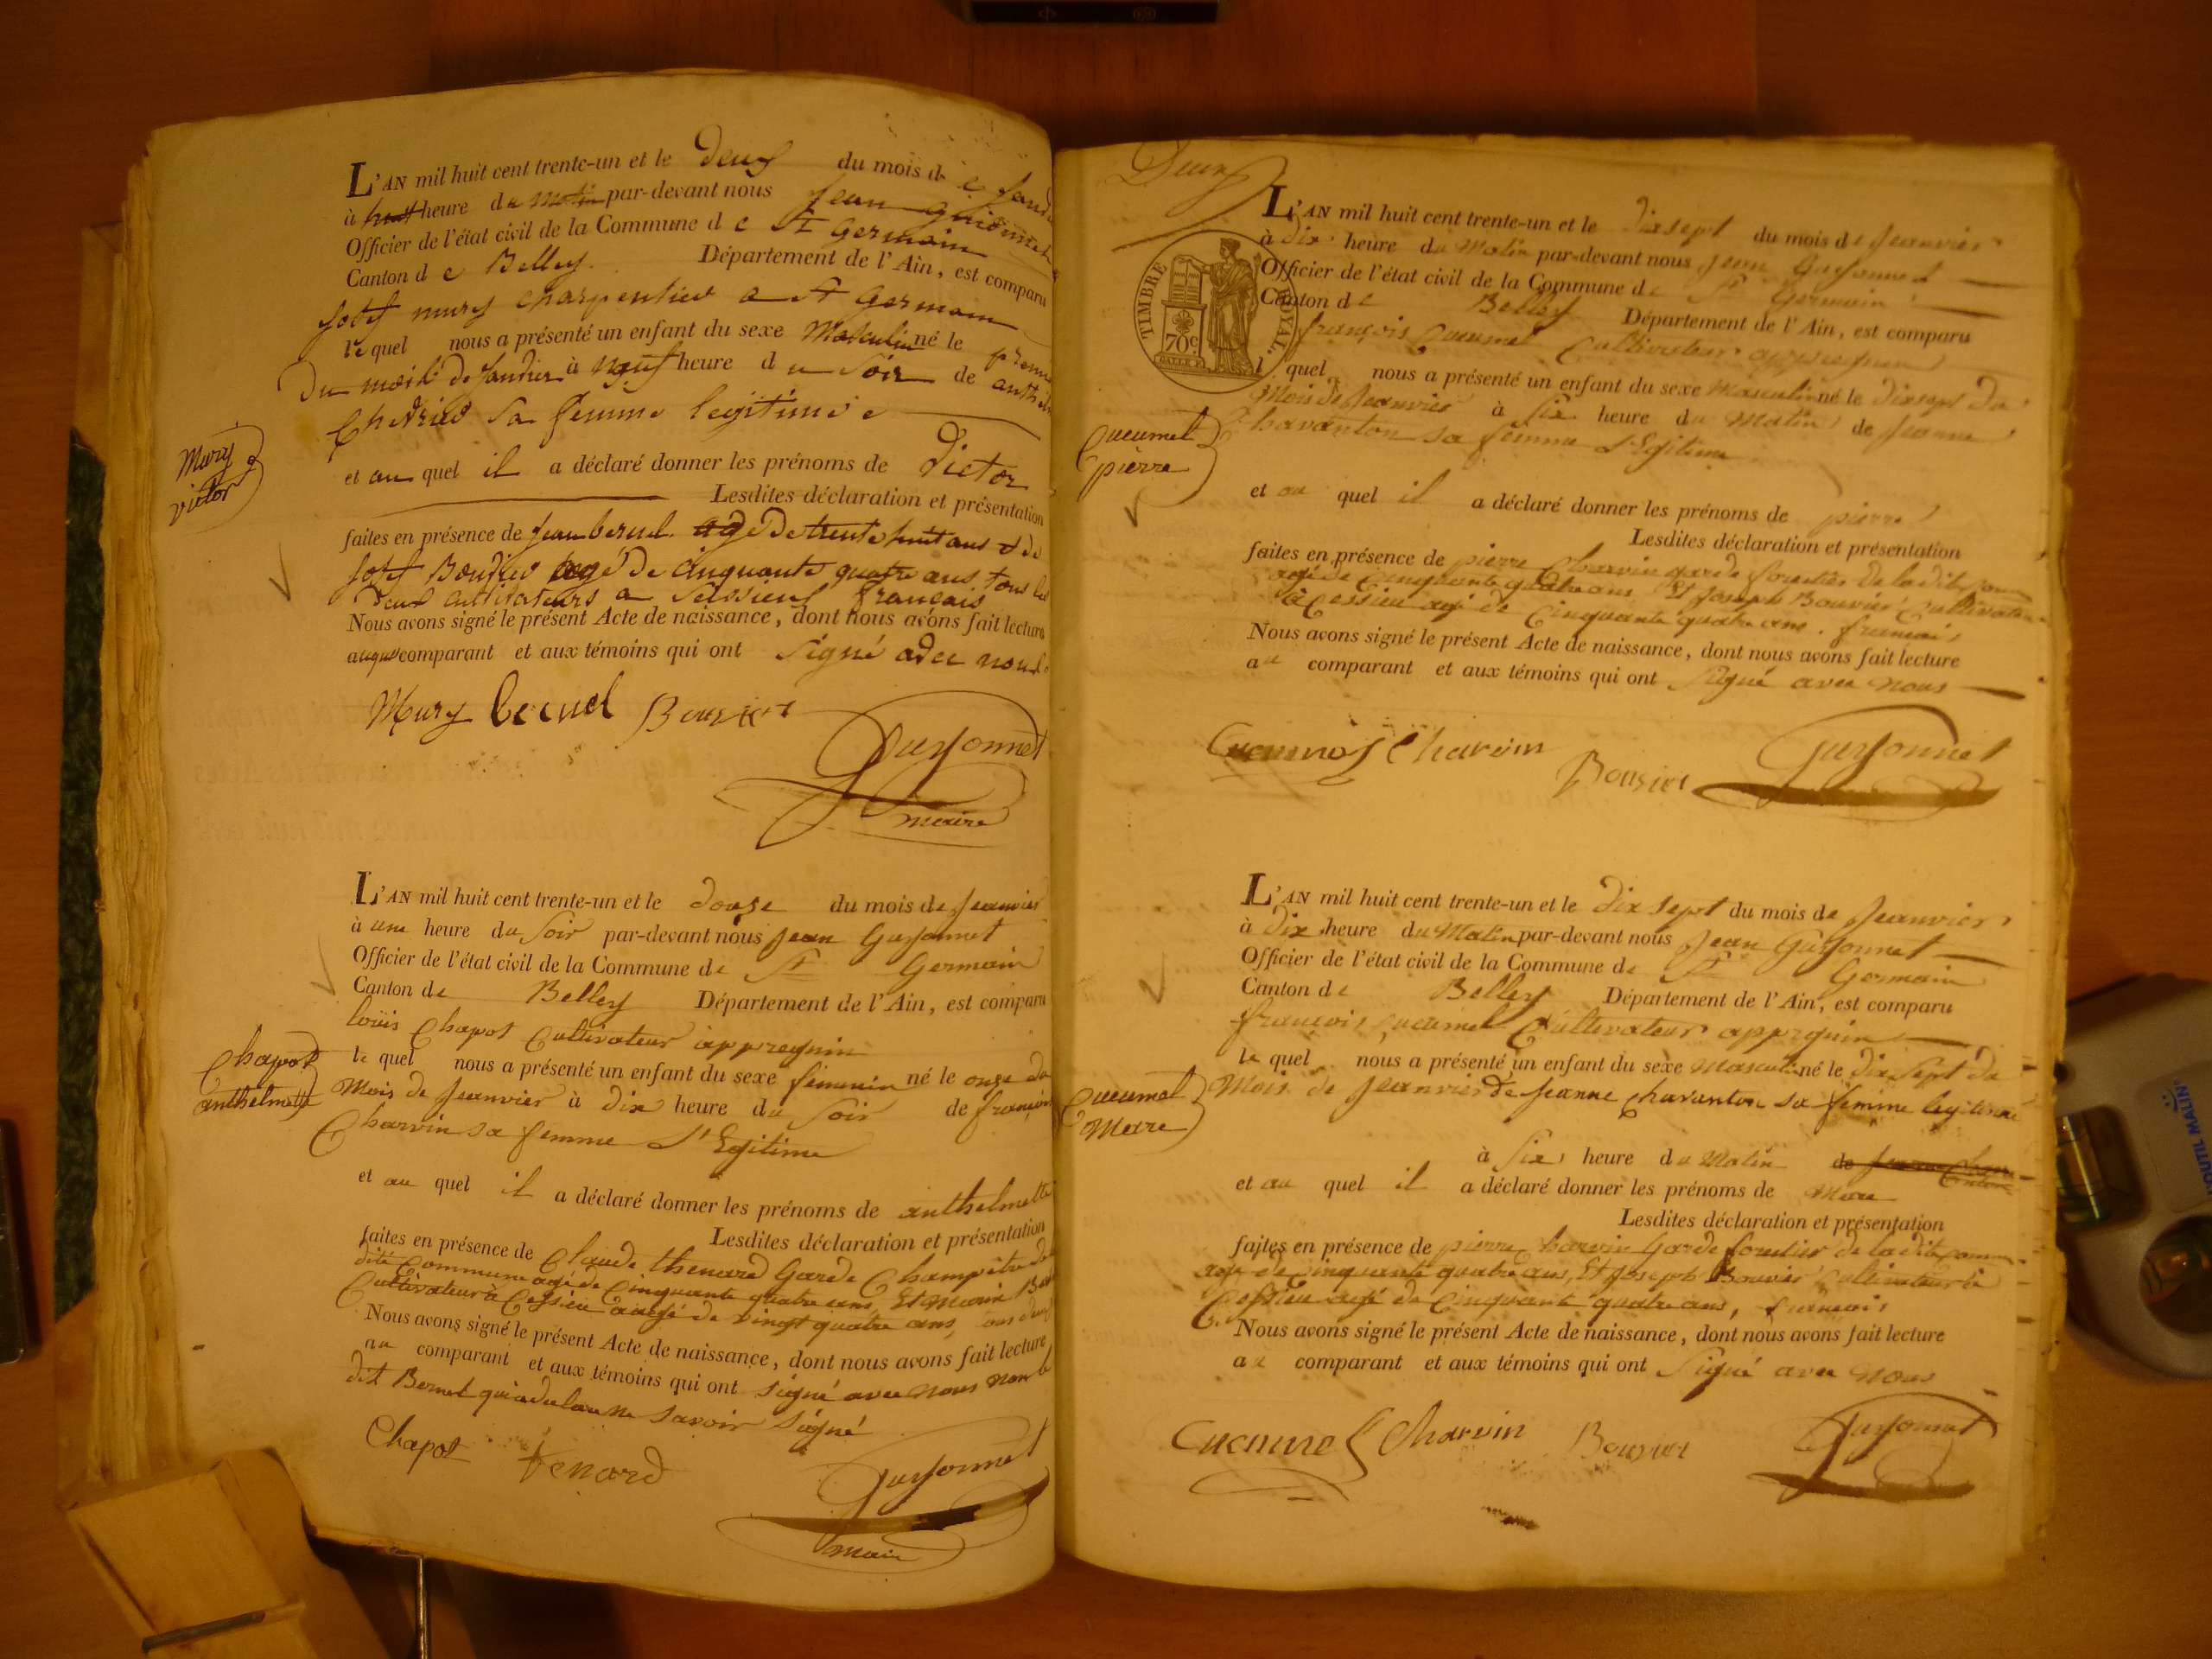 L'AN mil huit cent trente-un et le deux du mois de
à heure du matin par-devant nous jean
Officier de l'état civil de la Commune de St Germain
Canton de Belley. Département de l'Ain, est comparu
josef mury charpentier a St Germain
lequel nous a présenté un enfant du sexe Masculin né le
du mois de janvier à neuf heure du soir de
sa femme legitime
Mury
victor
et au quel il a déclaré donner les prénoms de victor
Lesdites déclaration et présentation
faites en présence de jean bernel agé de trente huit ans & de
josef Bouvier agé de cinquante quatre ans tous les
deux cultivateurs a Français
Nous avons signé le présent Acte de naissance, dont nous avons fait lecture
comparant et aux témoins qui ont signé avec nous
Mury bernel Bouvier
Guyonnet
maire
L'AN mil huit cent trente-un et le douze du mois de jeanvier
à une heure du soir par-devant nous jean Guyonnet
Officier de l'état civil de la Commune de St Germain
Canton de Belley Département de l'Ain, est comparu
louis Chapot Cultivateur appregnin
Chapot
anthelmette
le quel nous a présenté un enfant du sexe féminin né le onze du
Mois de jeanvier à dix heure du soir de
Charvin sa femme l'Egitime
et au quel il a déclaré donner les prénoms de anthelmette
Lesdites déclaration et présentation
faites en présence de Claude thenard Garde Champêtre de
dite Commune agé de Cinquante quatre ans, Et
Cultivateur à Cessieu de vingt quatre ans,
Nous avons signé le présent Acte de naissance, dont nous avons fait lecture
au comparant et aux témoins qui ont signé avec nous non le
dit Bernel savoir signé
Chapot Tenard
Guyonnet
maire
Deux
TIMBRE ROYAL.
70c
L'AN mil huit cent trente-un et le dixsept du mois de jeanvier
à dix heure du Matin par-devant nous jean Guyonnet
Officier de l'état civil de la Commune de St Germain
Canton de Belley Département de l'Ain, est comparu
françois Cucumel Cultivateur appregnin
l quel nous a présenté un enfant du sexe Masculin né le dixsept du
Mois de jeanvier à six heure du Matin de jeanne
Chavanton sa femme l'Egitime
Cucumel
pierre
et au quel il a déclaré donner les prénoms de pierre
Lesdites déclaration et présentation
faites en présence de pierre Charvin garde forestier de la dite
agé de Cinquante quatre ans Et joseph Bouvier Cultivateur
à Cessieu agé de Cinquante quatre ans. francais
Nous avons signé le présent Acte de naissance, dont nous avons fait lecture
au comparant et aux témoins qui ont signé avec nous
Cucumel Charvin
Bouvier Guyonnet
L'AN mil huit cent trente-un et le dix sept du mois de jeanvier
à dix heure du Matin par-devant nous jean Guyonnet
Officier de l'état civil de la Commune de St Germain
Canton de Belley Département de l'Ain, est comparu
françois Cucumel Cultivateur appregnin
le quel nous a présenté un enfant du sexe Masculin né le dix sept du
Mois de jeanvier de jeanne Chavanton sa femme legitime
Cucumel
à six heure du Matin
et au quel il a déclaré donner les prénoms de
Lesdites déclaration et présentation
faites en présence de pierre Charvin Garde forestier de la dite
agé de Cinquante quatre ans, Et joseph Bouvier Cultivateur à
Cessieu agé de Cinquante quatre ans, francais
Nous avons signé le présent Acte de naissance, dont nous avons fait lecture
au comparant et aux témoins qui ont signé avec nous
Cucumel Charvin Bouvier Guyonnet
L'OUTIL MALIN